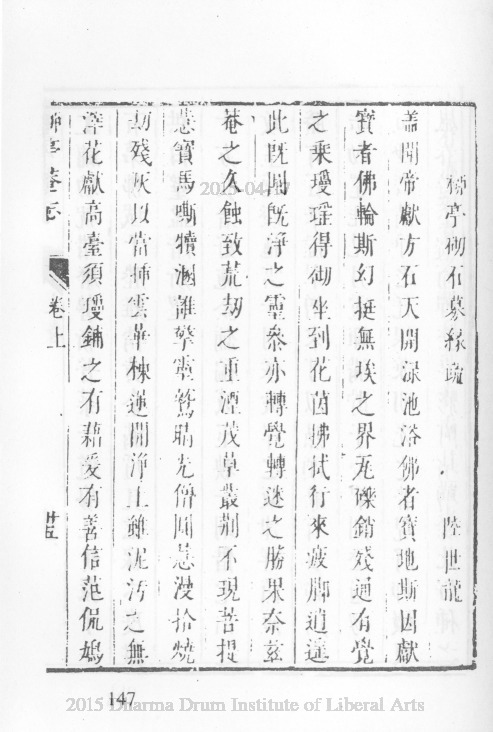 柳亭砌石募緣疏 陸世龍
蓋聞帝獻方石天開淥池浴佛者寶地斯因獻
寶者佛輪斯幻挺無埃之界瓦礫銷殘通有覺
之乘瓊瑤得砌坐到花茵拂拭行來疲脚逍遥
此既開既淨之靈叅亦轉覺轉迷之勝果奈兹
菴之久蝕致荒刼之重湮茂草叢荆不現菩提
慧寶馬嘶犢溷誰擎靈鷲晴光僧聞慧漫拾燒
刼殘灰以當揷雲華棟運開淨土雖泥污之無
滓花獻高臺須瓊鋪之有藉爰有善信范侃鳩
柳亭菴志 卷上 廿五
147
2015 Dharma Drum Institute of Liberal Arts